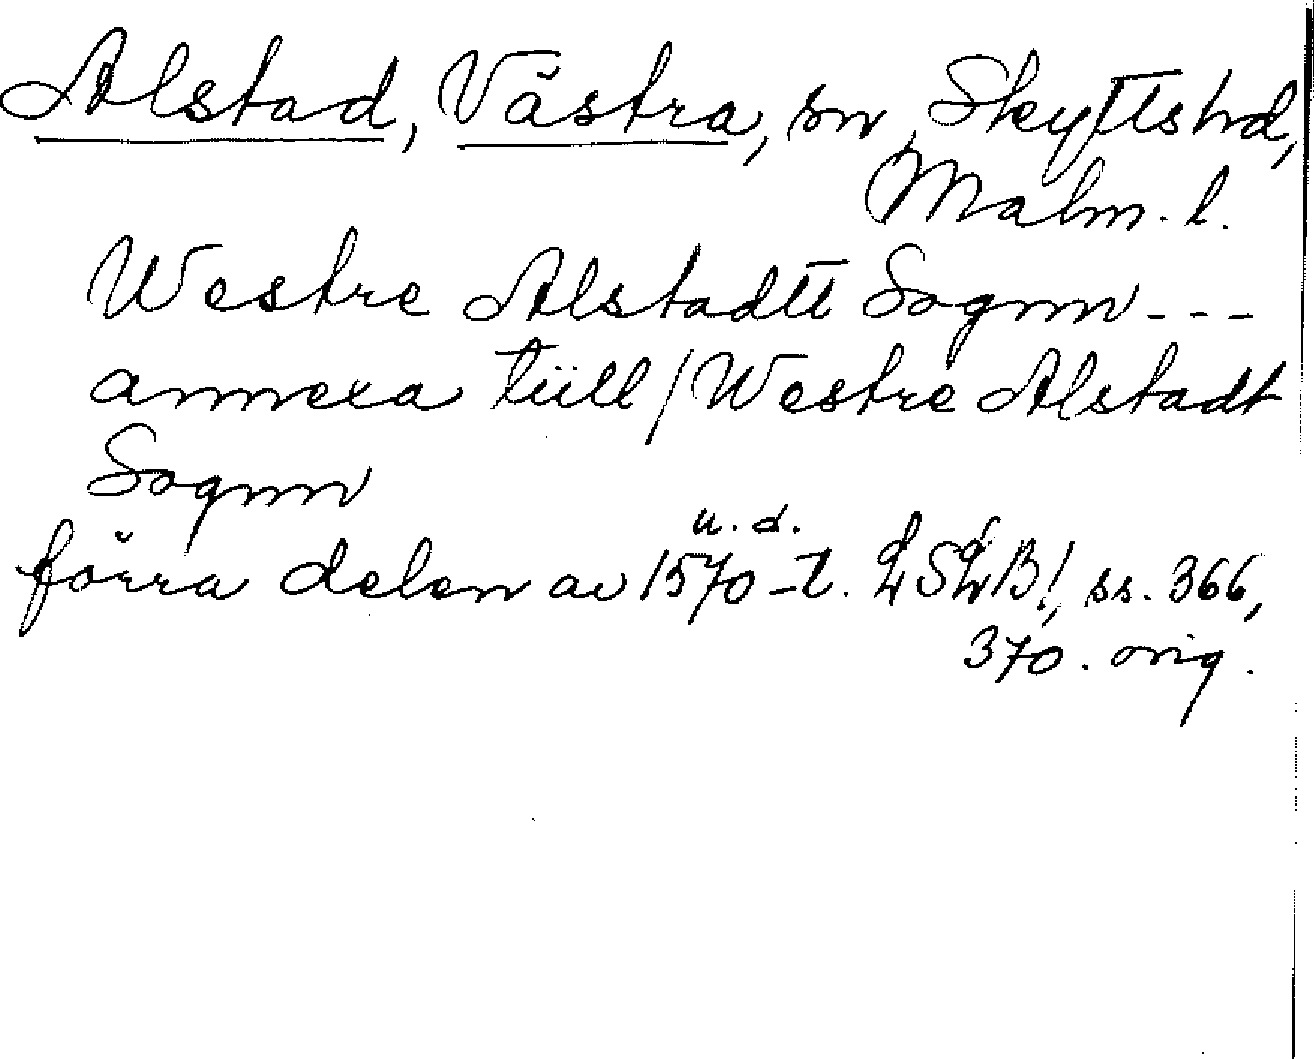 Alstad, Västra, sn, Skyttshd,
Malm. l.
Westre Alstadtt Sognn ---
annexa tüll / Westre Alstadt
Sognn
u. d.
förra delen av 1570-t. LSLB!, ss. 366,
370. orig.